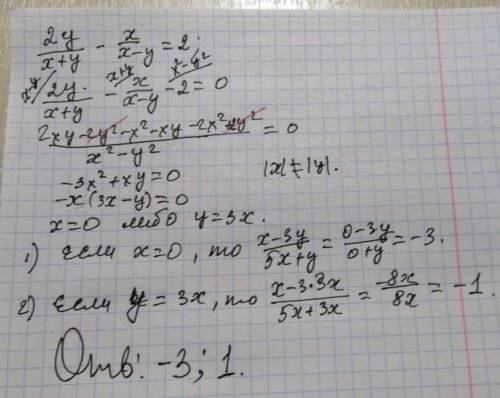 2y/(x+y) - x/(x-y) = 2.
x-y/ 2y/(x+y) - x+y/ x/(x-y) - x²-y²/ 2 = 0
(2xy - 2y² - x² - xy - 2x² + 2y²)/(x² - y²) = 0
-3x² + xy = 0 |x| ≠ |y|.
-x(3x-y) = 0
x=0 либо y=3x.
1) Если x=0, то (x-3y)/(5x+y) = (0-3y)/(0+y) = -3.
2) Если y = 3x, то (x-3·3x)/(5x+3x) = -8x/8x = -1.
Отв: -3; 1.